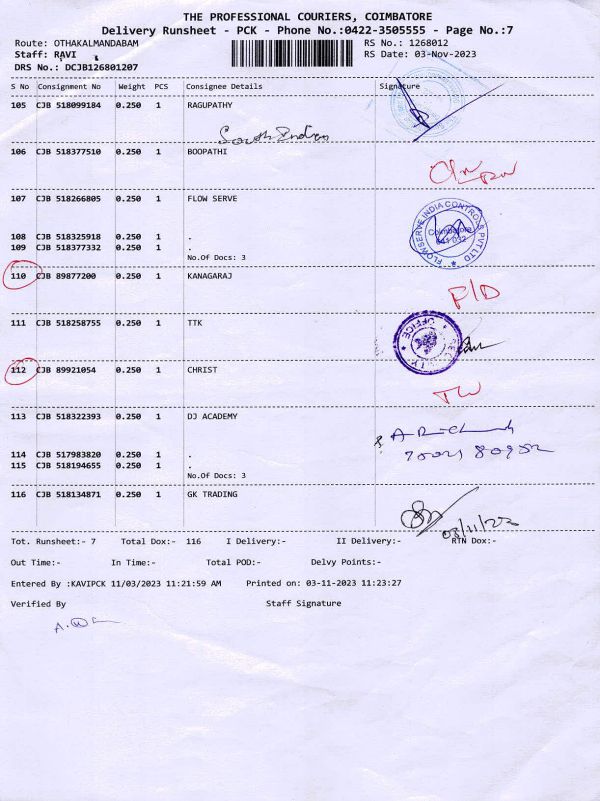 THE PROFESSIONAL COURIERS, COIMBATORE
Delivery Runsheet - PCK - Phone No.:0422-3505555 - Page No.:7
Route: OTHAKALMANDABAM RS No.: 1268012
Staff: RAVI RS Date: 03-Nov-2023
DRS No.: DCJB126801207
S No Consignment No Weight PCS Consignee Details Signature
105 CJB 518099184 0.250 1 RAGUPATHY
South Indian
106 CJB 518377510 0.250 1 BOOPATHI
107 CJB 518266805 0.250 1 FLOW SERVE
FLOWSERVE INDIA CONTROLS PVT LTD
Coimbatore
641 032
108 CJB 518325918 0.250 1 .
109 CJB 518377332 0.250 1 .
No.Of Docs: 3
110 CJB 89877200 0.250 1 KANAGARAJ
P/D
111 CJB 518258755 0.250 1 TTK
SECURITY OFFICE
112 CJB 89921054 0.250 1 CHRIST
113 CJB 518322393 0.250 1 DJ ACADEMY
114 CJB 517983820 0.250 1 .
115 CJB 518194655 0.250 1 .
No.Of Docs: 3
116 CJB 518134871 0.250 1 GK TRADING
Tot. Runsheet:- 7 Total Dox:- 116 I Delivery:- II Delivery:- RTN Dox:-
Out Time:- In Time:- Total POD:- Delvy Points:-
Entered By :KAVIPCK 11/03/2023 11:21:59 AM Printed on: 03-11-2023 11:23:27
Verified By Staff Signature